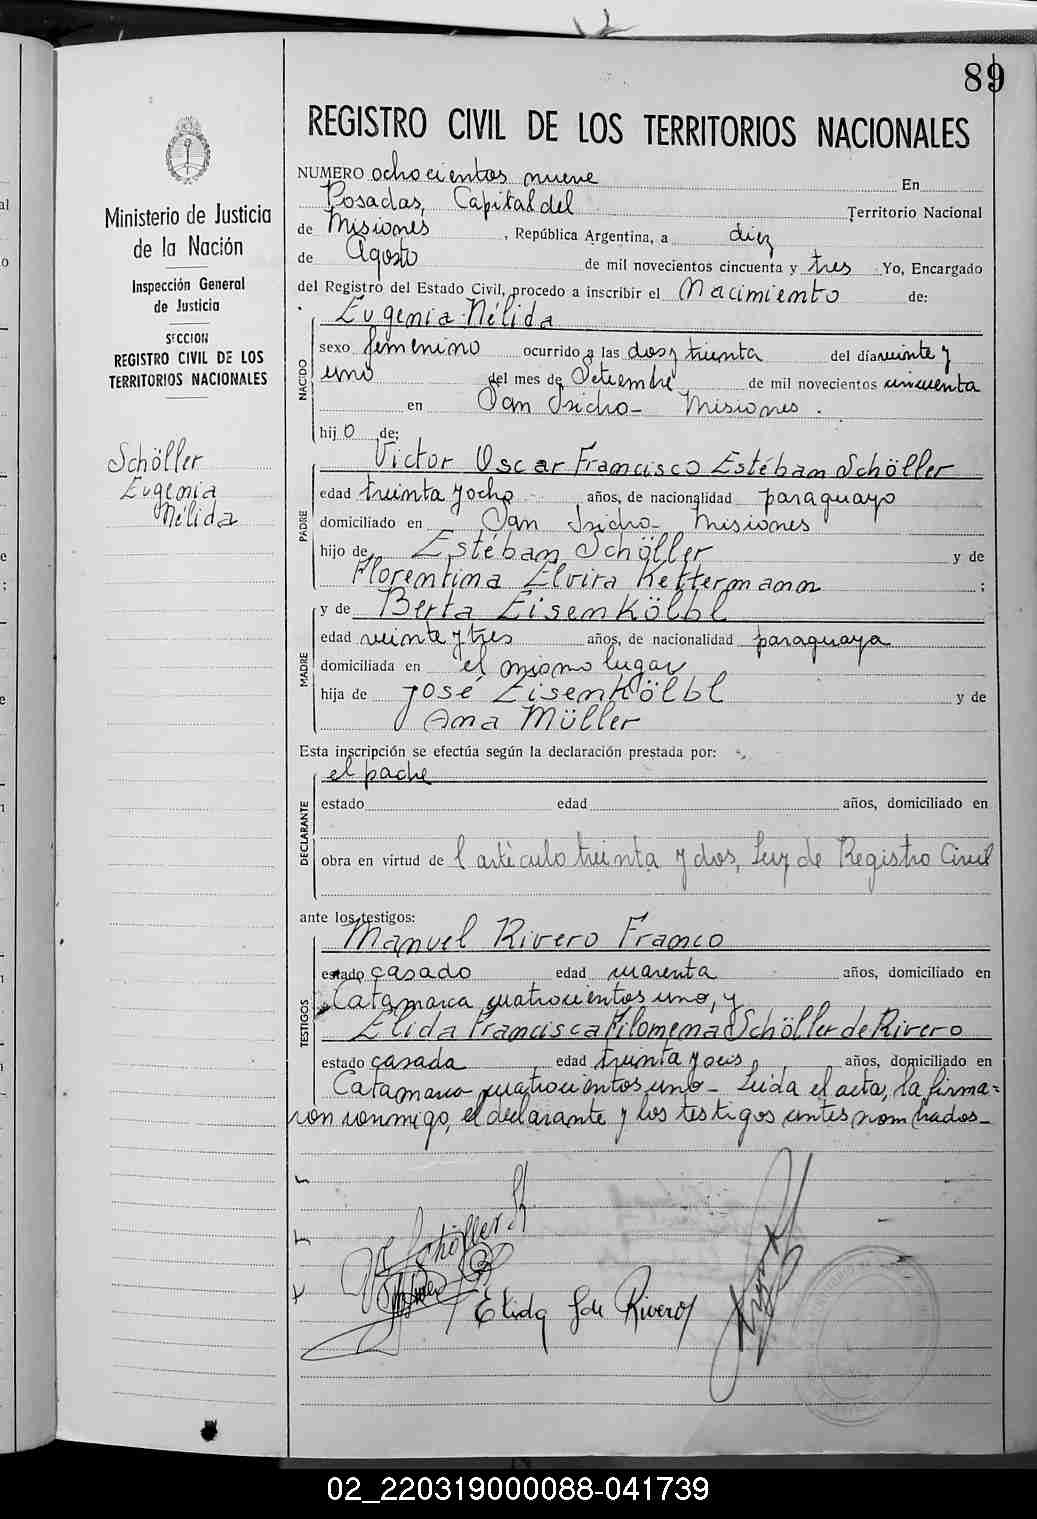 89
REGISTRO CIVIL DE LOS TERRITORIOS NACIONALES
Ministerio de Justicia
de la Nación
Inspección General
de Justicia
SECCION
REGISTRO CIVIL DE LOS
TERRITORIOS NACIONALES
Schöller
Eugenia
Nélida
NUMERO ochocientos nueve En
Posadas, Capital del Territorio Nacional
de Misiones, República Argentina, a diez
de Agosto de mil novecientos cincuenta y tres Yo, Encargado
del Registro del Estado Civil, procedo a inscribir el Nacimiento de:
NACIDO
Eugenia Nélida
sexo femenino ocurrido a las dos y treinta del día veinte y
uno del mes de Setiembre de mil novecientos cincuenta
en San Isidro- Misiones.
hijo de:
PADRE
Victor Oscar Francisco Estéban Schöller
edad treinta y ocho años, de nacionalidad paraguayo
domiciliado en San Isidro- Misiones
hijo de Estéban Schöller y de
Florentina Elvira Kettermann ;
MADRE
y de Berta Eisenkölbl
edad veinte y tres años, de nacionalidad paraguaya
domiciliada en el mismo lugar
hija de José Eisenkölbl y de
Ana Müller
Esta inscripción se efectúa según la declaración prestada por:
DECLARANTE
el padre
estado edad años, domiciliado en
obra en virtud de l artículo treinta y dos, Ley de Registro Civil
ante los testigos:
TESTIGOS
Manuel Rivero Franco
estado casado edad cuarenta años, domiciliado en
Catamarca cuatrocientos uno, y
Elida Francisca Filomena Schöller de Rivero
estado casada edad treinta y seis años, domiciliado en
Catamarca cuatrocientos uno- Leida el acta, la firma=
ron conmigo, el declarante y los testigos antes nombrados-
Schöller
Elida S de Rivero
02_220319000088-041739